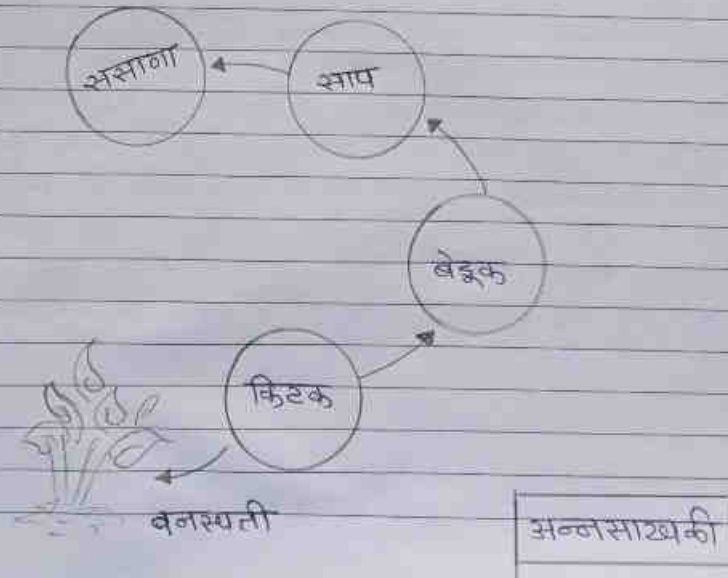 ससाणा
साप
बेडूक
किटक
वनस्पती
अन्नसाखळी